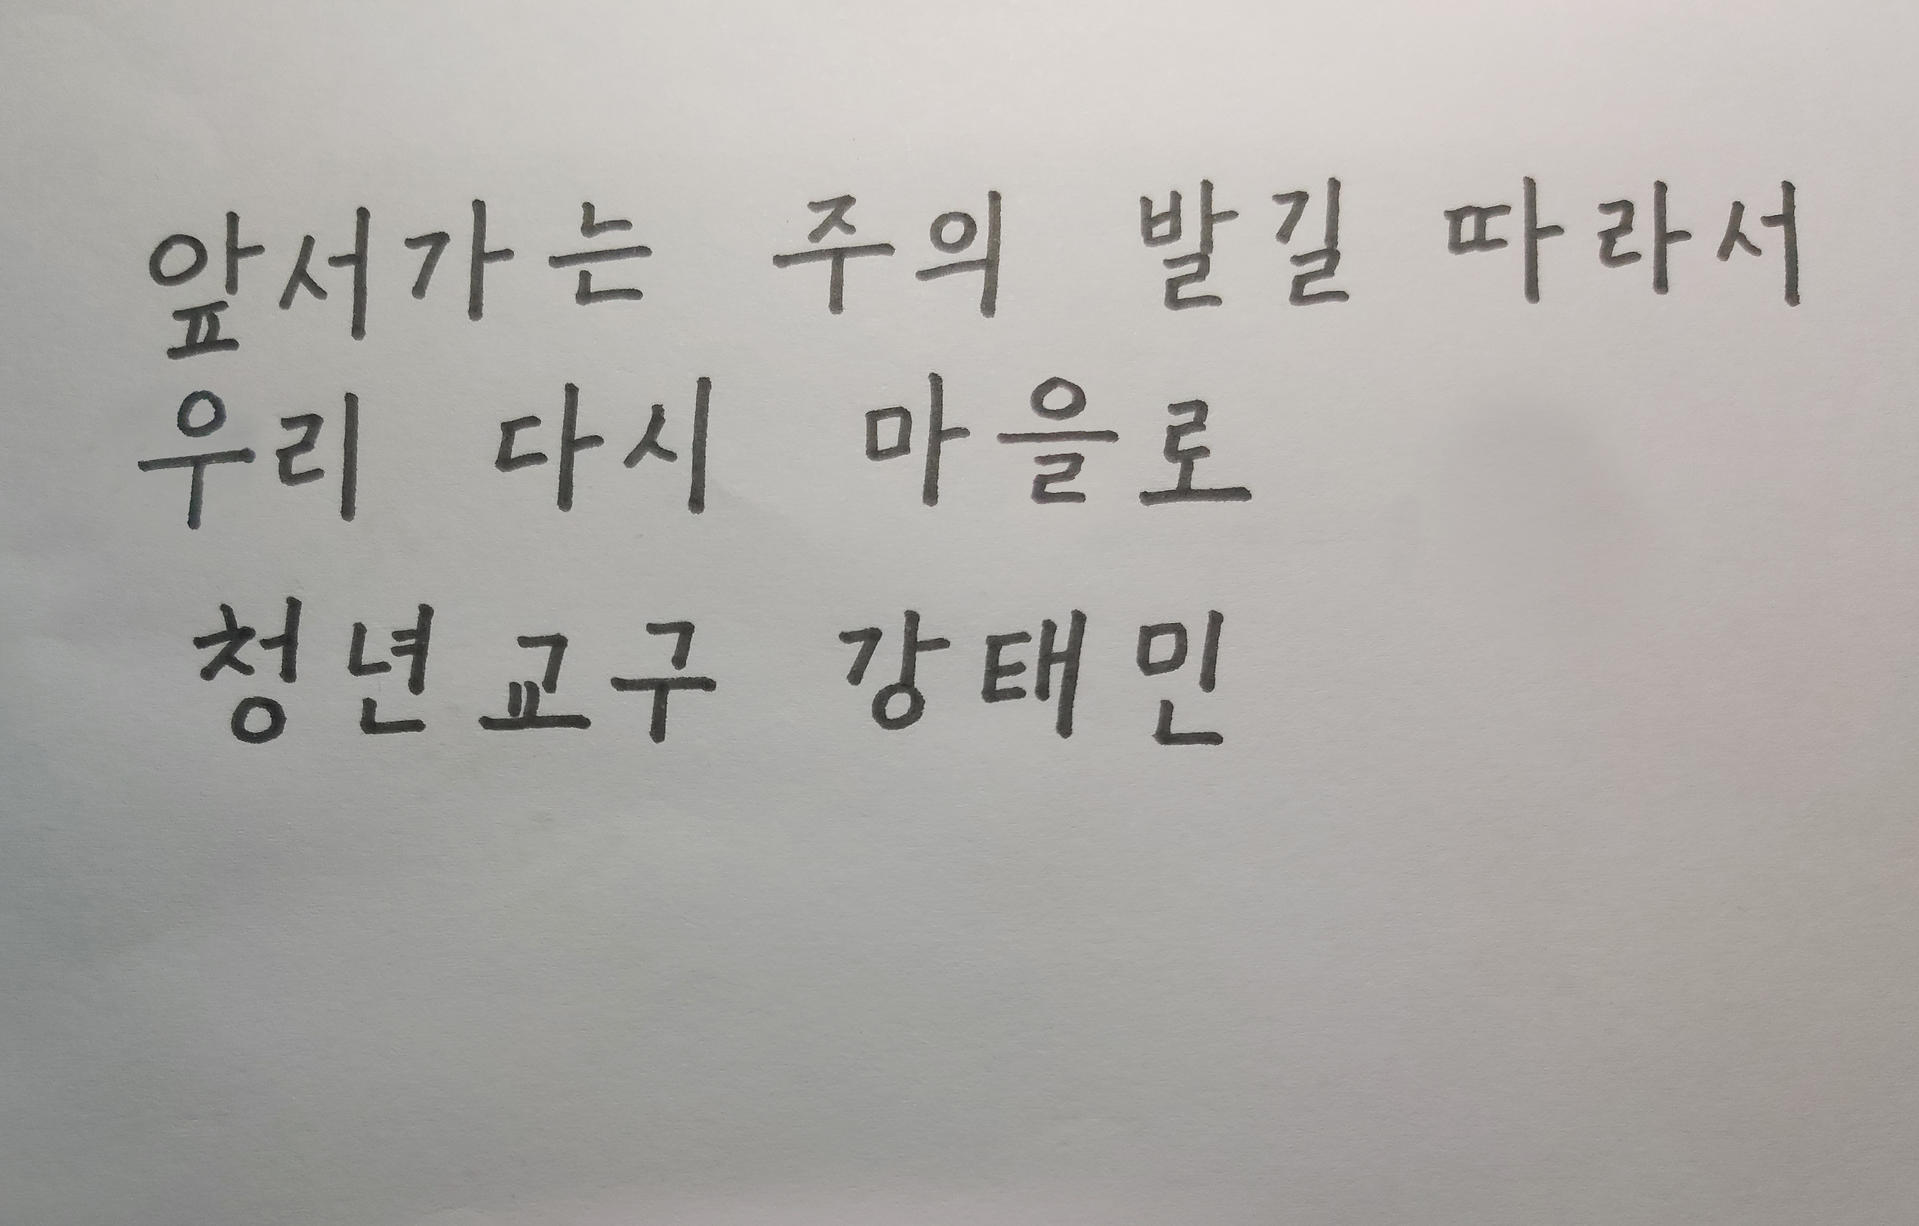 앞서가는 주의 발길 따라서
우리 다시 마을로
청년교구 강태민